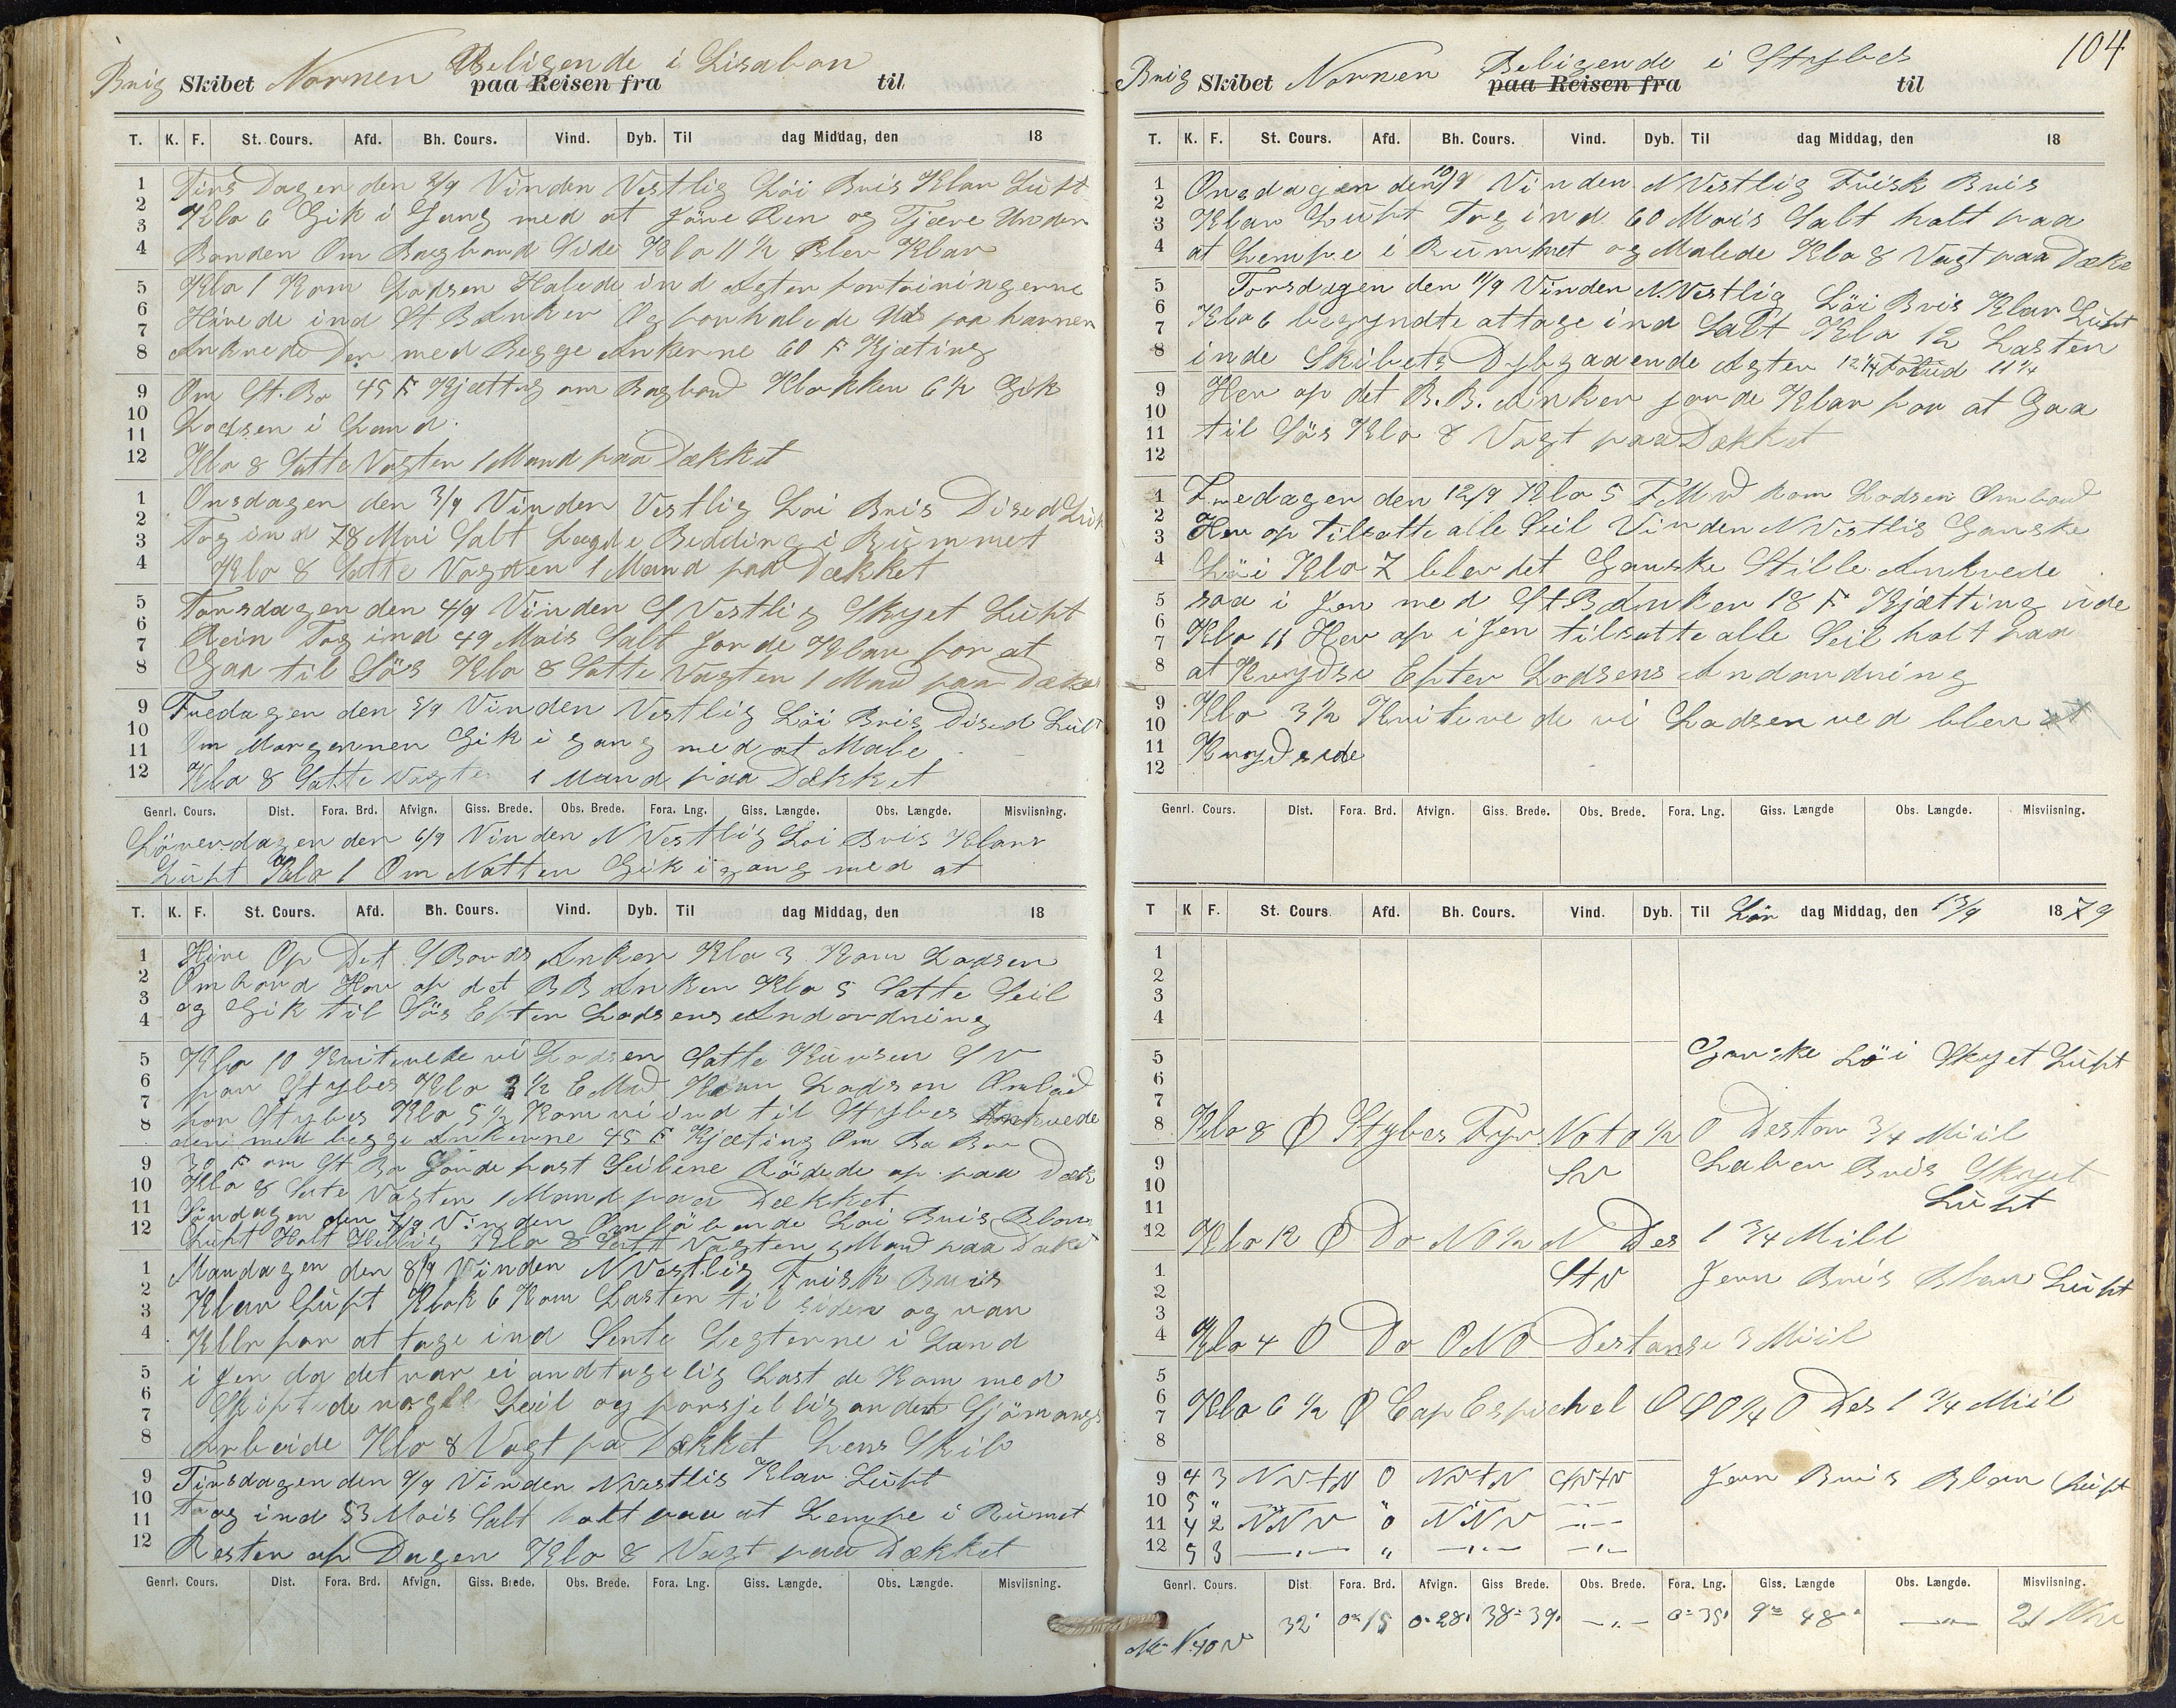 Brig Skibet Nornen Beligende i Lisabon paa Reisen fra til
T. K. F. St. Cours. Afd. Bh. Cours. Vind. Dyb. Til dag Middag, den 18
1 2 3 4 5 6 7 8 9 10 11 12
Tirs Dagen den 2/9 Vinden Vestlig Löi Bris Klar Luft
Klo 6 Gik i Gang med at Jöre Ren og Tjære Under
Banden Om Bagbord Side Klo 11 1/2 Blev Klar
Klo 1 Kom Lodsen Halede ind Agter fortöiningerne
Hivede ind St B Anker Og forhalede Ud paa havnen
Ankrede Der med Begge Ankerne 60 F Kjæting
Om St. Bo 45 F Kjætting om Bagbord Klokken 6 1/2 Gik
Lodsen i Land.
Klo 8 Satte Vagten 1 Mand paa Dækket
1 2 3 4 5 6 7 8 9 10 11 12
Onsdagen den 3/9 Vinden Vestlig Löi Bris Dised Luft
Tog ind 78 Moi Salt Lagde Bedding i Rummet
Klo 8 Satte Vagten 1 Mand paa Dækket
Torsdagen den 4/9 Vinden S Vestlig Skyet Luft
Rein Tog ind 49 Mois Salt Jorde Klar for at
Gaa til Söis Klo 8 Satte Vagten 1 Mand paa Dække
Fredagen den 5/9 Vinden Vestlig Löi Bris Dised Luft
Om Morgennen Gik i gang med at Male
Klo 8 Satte Vagten 1 Mand paa Dækket
Genrl. Cours. Dist. Fora. Brd. Afvign. Giss. Brede. Obs. Brede. Fora. Lng. Giss. Længde. Obs. Længde. Misviisning.
Löverdagen den 6/9 Vinden N Vestlig Loi Bris Klar
Luft Klo 1 Om Natten Gik i gang med at
T. K. F. St. Cours. Afd. Bh. Cours. Vind. Dyb. Til dag Middag, den 18
1 2 3 4 5 6 7 8 9 10 11 12
Hive Op Det S Bords Anker Klo 3 Kom Lodsen
Ombord Hev op det B B Anker Klo 5 Satte Seil
og Gik til Söis Efter Lodsens Andordning
Klo 10 Kvitevede vi Lodsen Satte Kursen S V
for Stybes Klo 3 1/2 E Md Kom Lodsen Ombord
for Stybes Klo 5 1/2 Kom vi ind til Stybes Ankrede
der med begge Ankerne 45 F Kjæting Om Ba Bor
30 F om St Bo Jörde fast Seilene Rödede op paa Dæk
Klo 8 Satte Vagten 1 Mand paa Dækket
Söndagen den 7/9 Vinden Omlöbende Loi Bris Blan
Luft Holt Hellig Klo 8 Satt Vagten 1 Mand paa Dæket
1 2 3 4 5 6 7 8 9 10 11 12
Mandagen den 8/9 Vinden N Vestlig Frisk Bris
Klar Luft Klok 6 Kom Lasten til siden og var
Klar for at tage ind Sente Legterne i Land
i Jen da det var ei andtagelig Last de Kom med
Skiftede nogle Seil og forsjellig andet Sjömangs
Arbeide Klo 8 Vagt pa Dækket Lens Skib
Tirsdagen den 9/9 Vinden N Vestlis Klar Luft
Toog ind 53 Mois Salt halt paa at Lempe i Rumet
Resten af Dagen Klo 8 Vagt paa Dækket
Genrl. Cours. Dist. Fora. Brd. Afvign. Giss. Brede. Obs. Brede. Fora. Lng. Giss. Længde. Obs. Længde. Misviisning.
104
Brig Skibet Nornen Beligende i Stybes paa Reisen fra til
T. K. F. St. Cours. Afd. Bh. Cours. Vind. Dyb. Til dag Middag, den 18
1 2 3 4 5 6 7 8 9 10 11 12
Onsdagen den 10/9 Vinden N Vestlig Frisk Bris
Klar Luft Tog ind 60 Mois Salt halt paa
at Lempe i Rummet og Malede Klo 8 Vagt paa Dæke
Torsdagen den 11/9 Vinden N. Vestlig Löi Bris Klar Luft
Klo 6 begyndte at tage ind Salt Klo 12 Lasten
inde Skibets Dybgaaende Agter 12 1/4 Forud 11 1/4
Hev op det B. B. Anker jorde Klar for at Gaa
til Söis Klo 8 Vagt paa Dækket
1 2 3 4 5 6 7 8 9 10 11 12
Fredagen den 12/9 Klo 5 F Md kom Lodsen Ombord
Hev op tilsatte alle Seil Vinden N Vestlis Ganske
Löi Klo 7 blev det Ganske Stille Ankrede
saa i Jen med St. B Anker 18 F Kjætting ude
Klo 11 Hev op i Jen tilsatte alle Seil halt paa
at Krydse Efter Lodsens Andordning
Klo 3 1/2 Kvitevede vi Lodsen ved blev at
Krydsede
Genrl. Cours. Dist. Fora. Brd. Afvign. Giss. Brede. Obs. Brede. Fora. Lng. Giss. Længde Obs. Længde. Misviisning.
T K F. St. Cours. Afd. Bh. Cours. Vind. Dyb. Til Lör dag Middag, den 13/9 1879
1 2 3 4 5 6 7 8 9 10 11 12
Ganske Löi Skyet Luft
Klo 8 Stybes Fyr N o t O 1/2 O Destan 3/4 Miil
SV Laber Bris Skyet
Luft
Klo 12 Do N O 1/2 N Des 1 3/4 Mill
1 2 3 4 5 6 7 8 9 10 11 12
StV Jevn Bris Klar Luft
Klo 4 Do ONO Destanse 3 Miil
Klo 6 1/2 Cap Espichel O S O 1/4 O Des 1 3/4 Miil
4 3 NVtN 0 NVtN SVtV Jevn Bris Klar Luft
5 "
4 2 NNV 0 NNV —"—
5 3 —"— " —"— —"—
Genrl. Cours. Dist Fora. Brd. Afvign. Giss Brede. Obs. Brede. Fora. Lng. Giss. Længde Obs. Længde. Misviisning.
N. 40 V 32' 0° 15 0° 28' 38° 39' —"— 0° 35' 9° 48' —"— 21